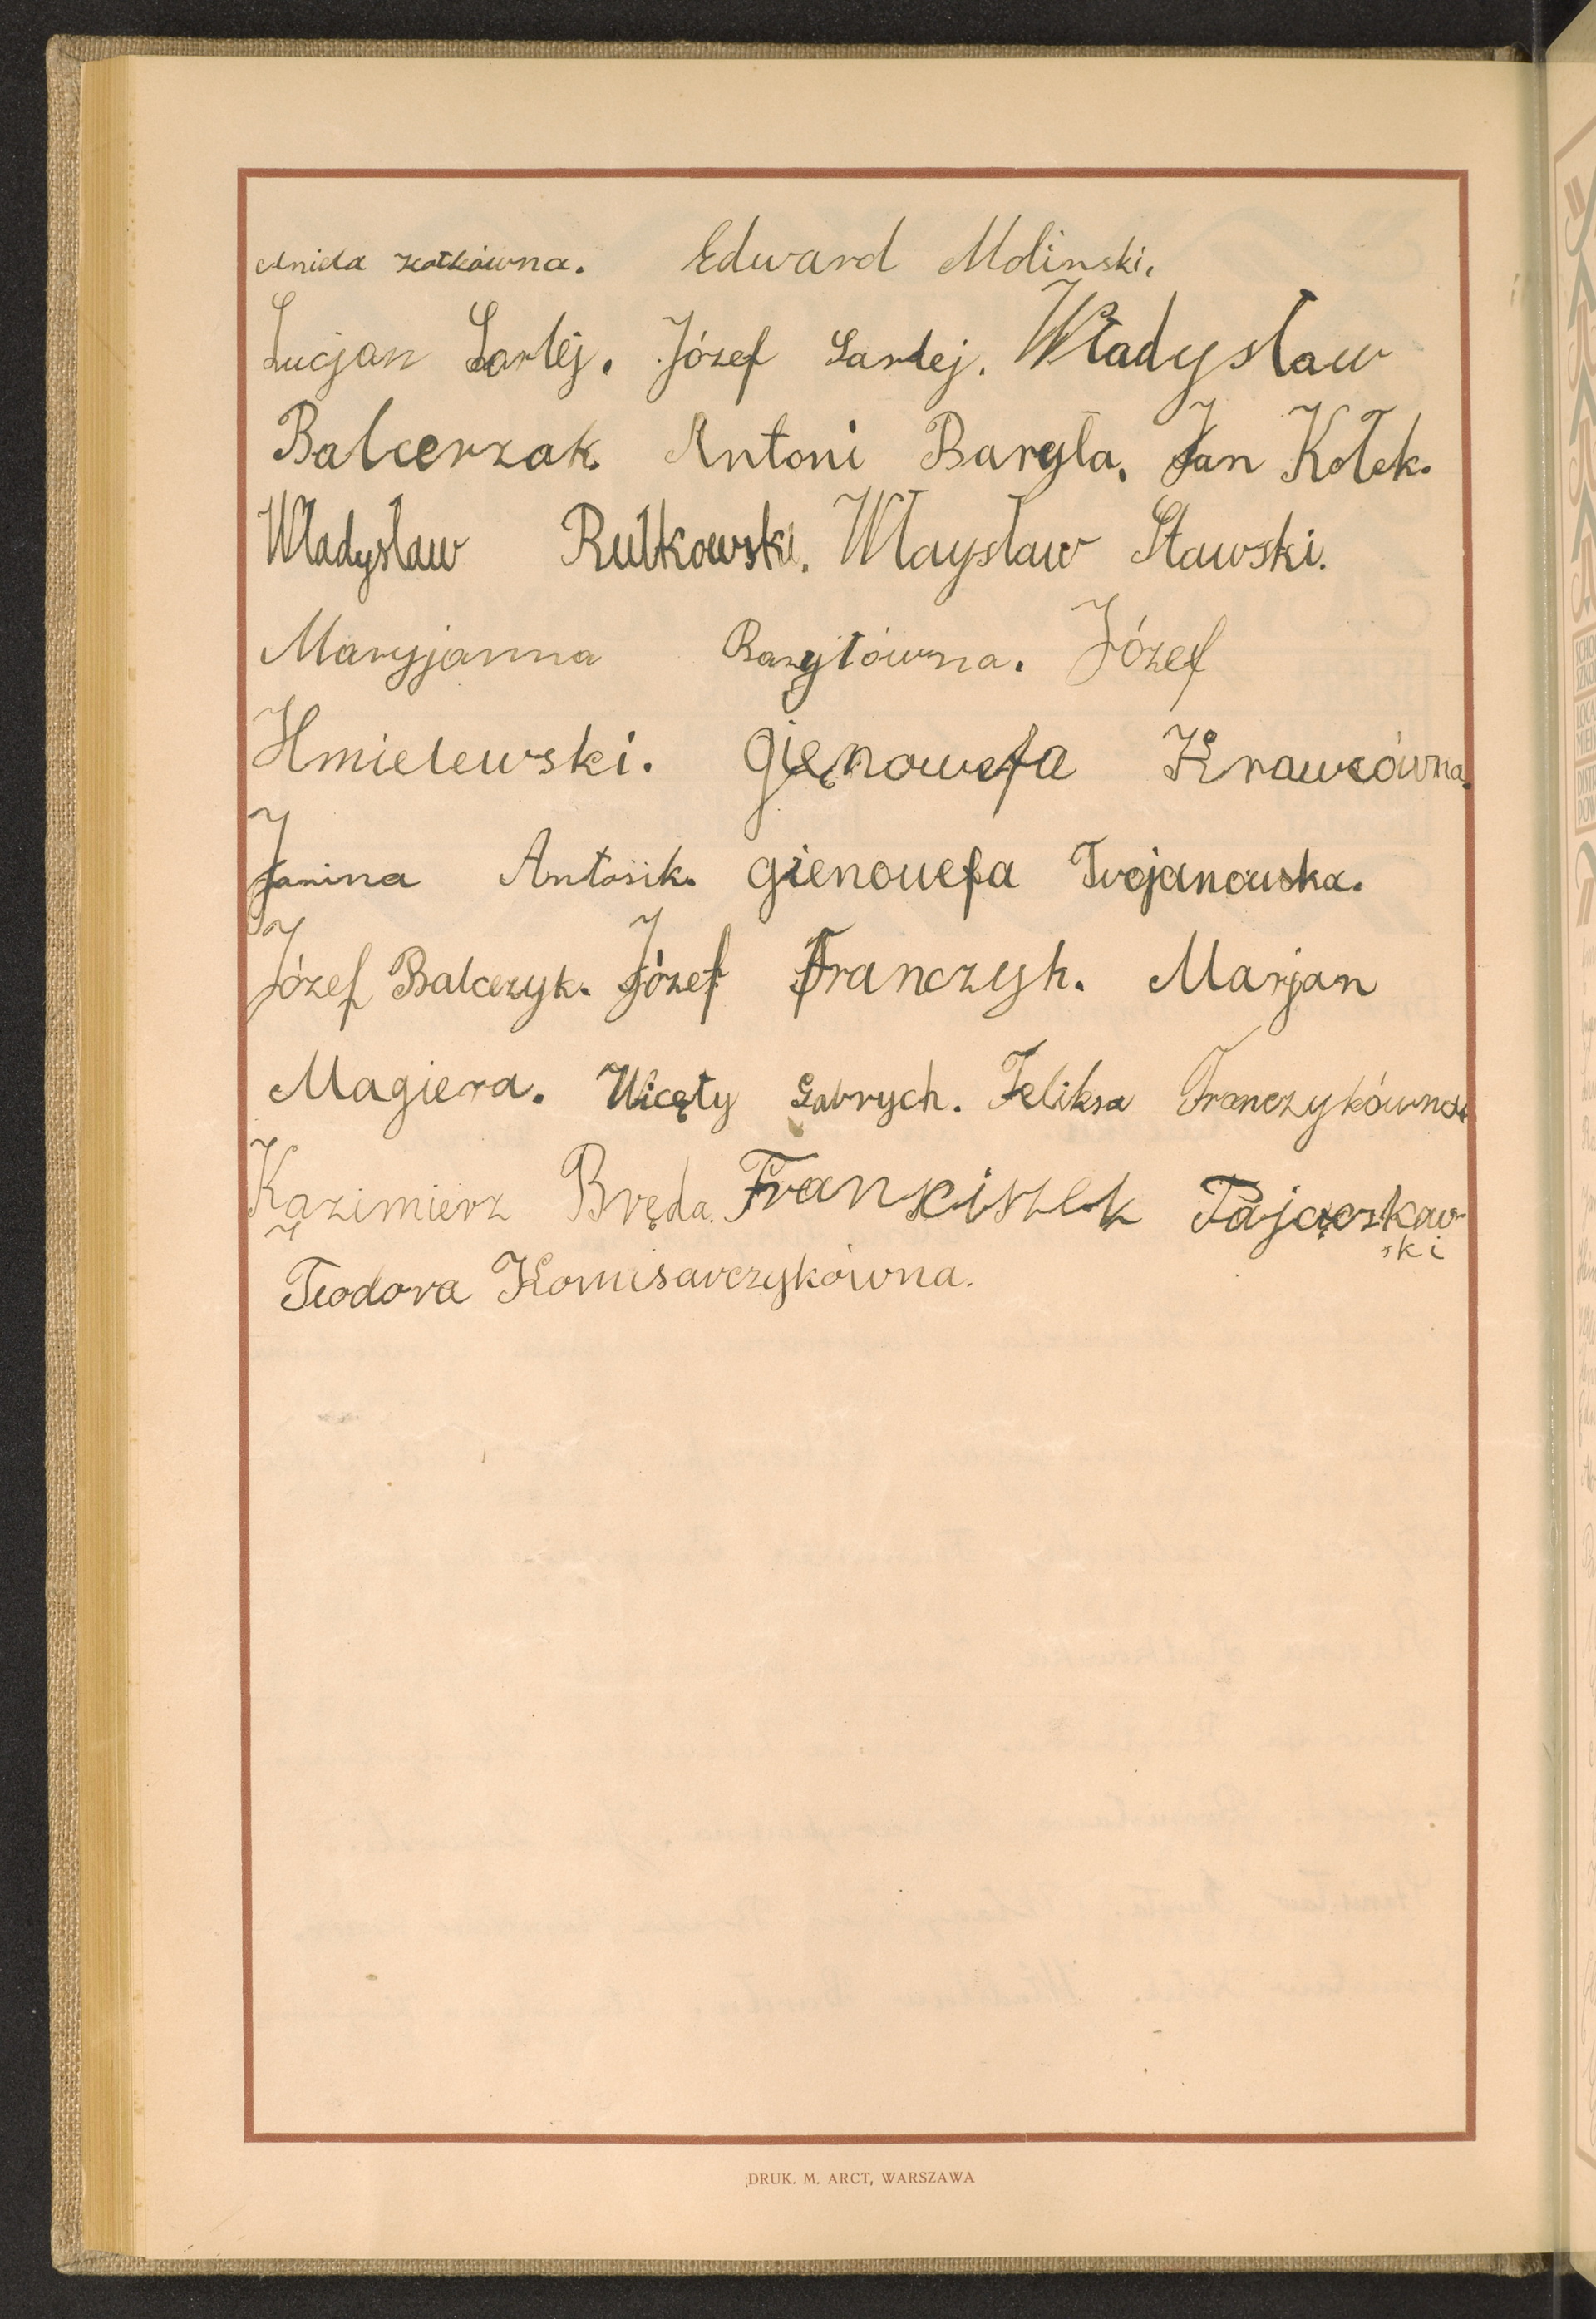 Aniela Kołkówna. Edward Molinski.
Lucjan Larlej. Józef Larlej. Władysław
Balcerzak. Antoni Baryła. Jan Kołek.
Władysław Rutkowski. Właysław Sławski.
Maryjanna Baryłówna. Józef
Hmielewski. Gienowefa Krawcówna.
Janina Antosik. Gienowefa Trojanowska.
Józef Balcezyk. Józef Franczyk. Marjan
Magiera. Wicęty Gabrych. Feliksa Franczykówna
Kazimierz Bręda. Franciszek Pajączkow
ski
Teodora Komisarczykówna.
DRUK. M. ARCT, WARSZAWA